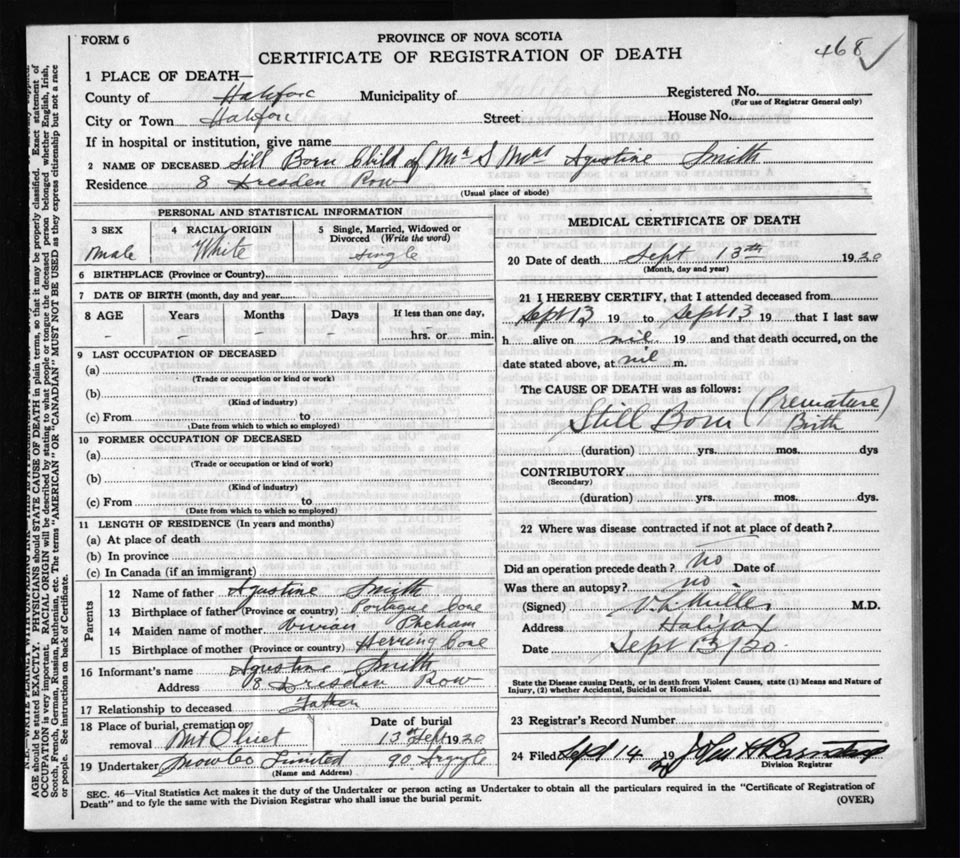 FORM 6
PROVINCE OF NOVA SCOTIA
CERTIFICATE OF REGISTRATION OF DEATH
468 ✓
1 PLACE OF DEATH—
County of Halifax Municipality of
Registered No.
(For use of Registrar General only)
City or Town Halifax Street House No.
If in hospital or institution, give name
2 NAME OF DECEASED Still Born Child of Mr & Mrs Agustine Smith
Residence 8 Dresden Row
(Usual place of abode)
PERSONAL AND STATISTICAL INFORMATION
3 SEX 4 RACIAL ORIGIN 5 Single, Married, Widowed or Divorced (Write the word)
Male White Single
6 BIRTHPLACE (Province or Country)
7 DATE OF BIRTH (month, day and year
8 AGE Years Months Days If less than one day,
- - - - hrs. or min.
9 LAST OCCUPATION OF DECEASED
(a)
(Trade or occupation or kind or work)
(b)
(Kind of industry)
(c) From to
(Date from which to which so employed)
10 FORMER OCCUPATION OF DECEASED
(a)
(Trade or occupation or kind of work)
(b)
(Kind of industry)
(c) From to
(Date from which to which so employed)
11 LENGTH OF RESIDENCE (In years and months)
(a) At place of death
(b) In province
(c) In Canada (if an immigrant)
Parents
12 Name of father Agustine Smith
13 Birthplace of father (Province or country) Portague Cove
14 Maiden name of mother Vivian
15 Birthplace of mother (Province or country) Herring Cove
16 Informant's name Agustine Smith
Address 8 Dresden Row
17 Relationship to deceased Father
18 Place of burial, cremation or removal Mt Olivet
Date of burial 13th Sept 1930
19 Undertaker Snow Co Limited 90 Argyle
(Name and Address)
MEDICAL CERTIFICATE OF DEATH
20 Date of death Sept 13th 1930
(Month, day and year)
21 I HEREBY CERTIFY, that I attended deceased from
Sept 13 19 to Sept 13 19 that I last saw
h alive on nil 19 and that death occurred, on
date stated above, at nil m.
The CAUSE OF DEATH was as follows:
Still Born (Premature Birth)
(duration) yrs. mos. dys
CONTRIBUTORY
(Secondary)
(duration) yrs. mos. dys.
22 Where was disease contracted if not at place of death?
Did an operation precede death? no Date of
Was there an autopsy? no
(Signed) M.D.
Address Halifax
Date Sept 13/30.
State the Disease causing Death, or in death from Violent Causes, state (1) Means and Nature of
Injury, (2) whether Accidental, Suicidal or Homicidal.
23 Registrar's Record Number
24 Filed Sept 14 19
Division Registrar
SEC. 46—Vital Statistics Act makes it the duty of the Undertaker or person acting as Undertaker to obtain all the particulars required in the "Certificate of Registration of
Death" and to fyle the same with the Division Registrar who shall issue the burial permit.
(OVER)
AGE should be stated EXACTLY. PHYSICIANS should STATE CAUSE OF DEATH in plain terms, so that it may be properly classified. Exact statement of
OCCUPATION is very important. RACIAL ORIGIN will be described by stating to what people or tongue the deceased person belonged, whether English, Irish,
Scotch, French, German, Russian, Ruthenian, etc. The terms "AMERICAN" OR "CANADIAN" MUST NOT BE USED as they express citizenship but not a race
or people. See instructions on back of Certificate.